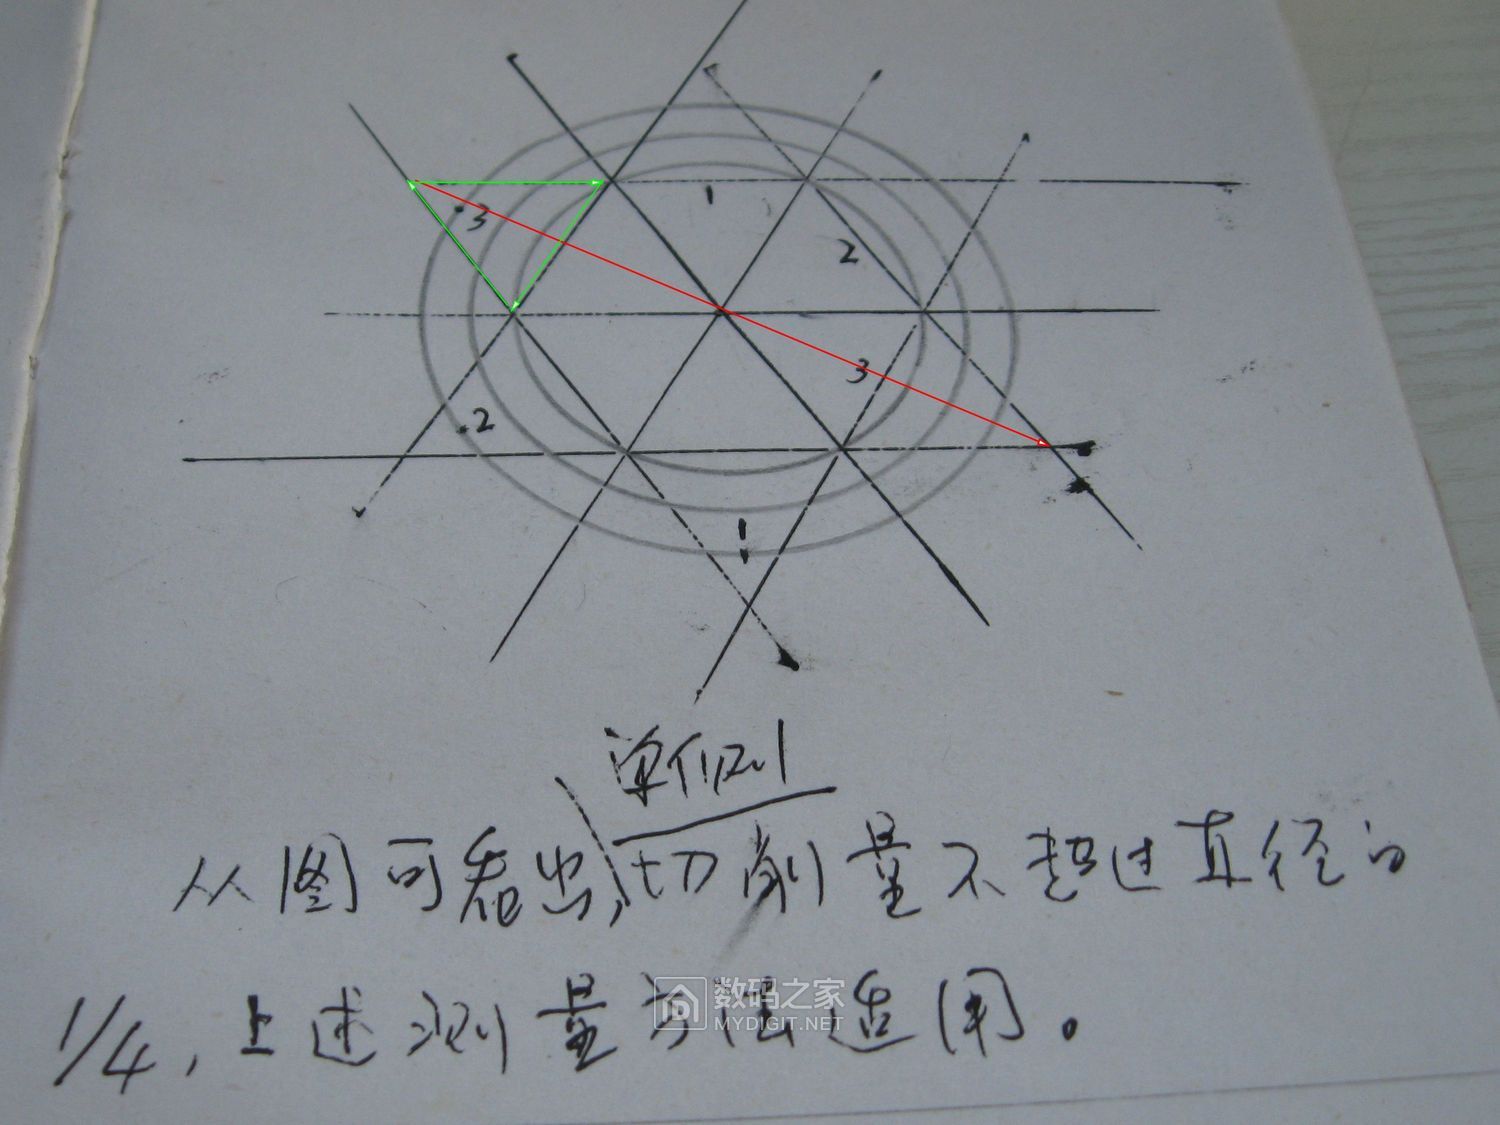 1
2
3
3
2
1
单侧
从图可看出,切削量不超过直径的
1/4,上述测量方法适用。
数码之家
MYDIGIT.NET